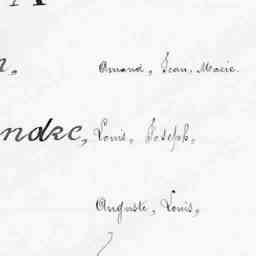 n, Amand, Jean, Marie.
ndre, Louis, Joseph,
Auguste, Louis,